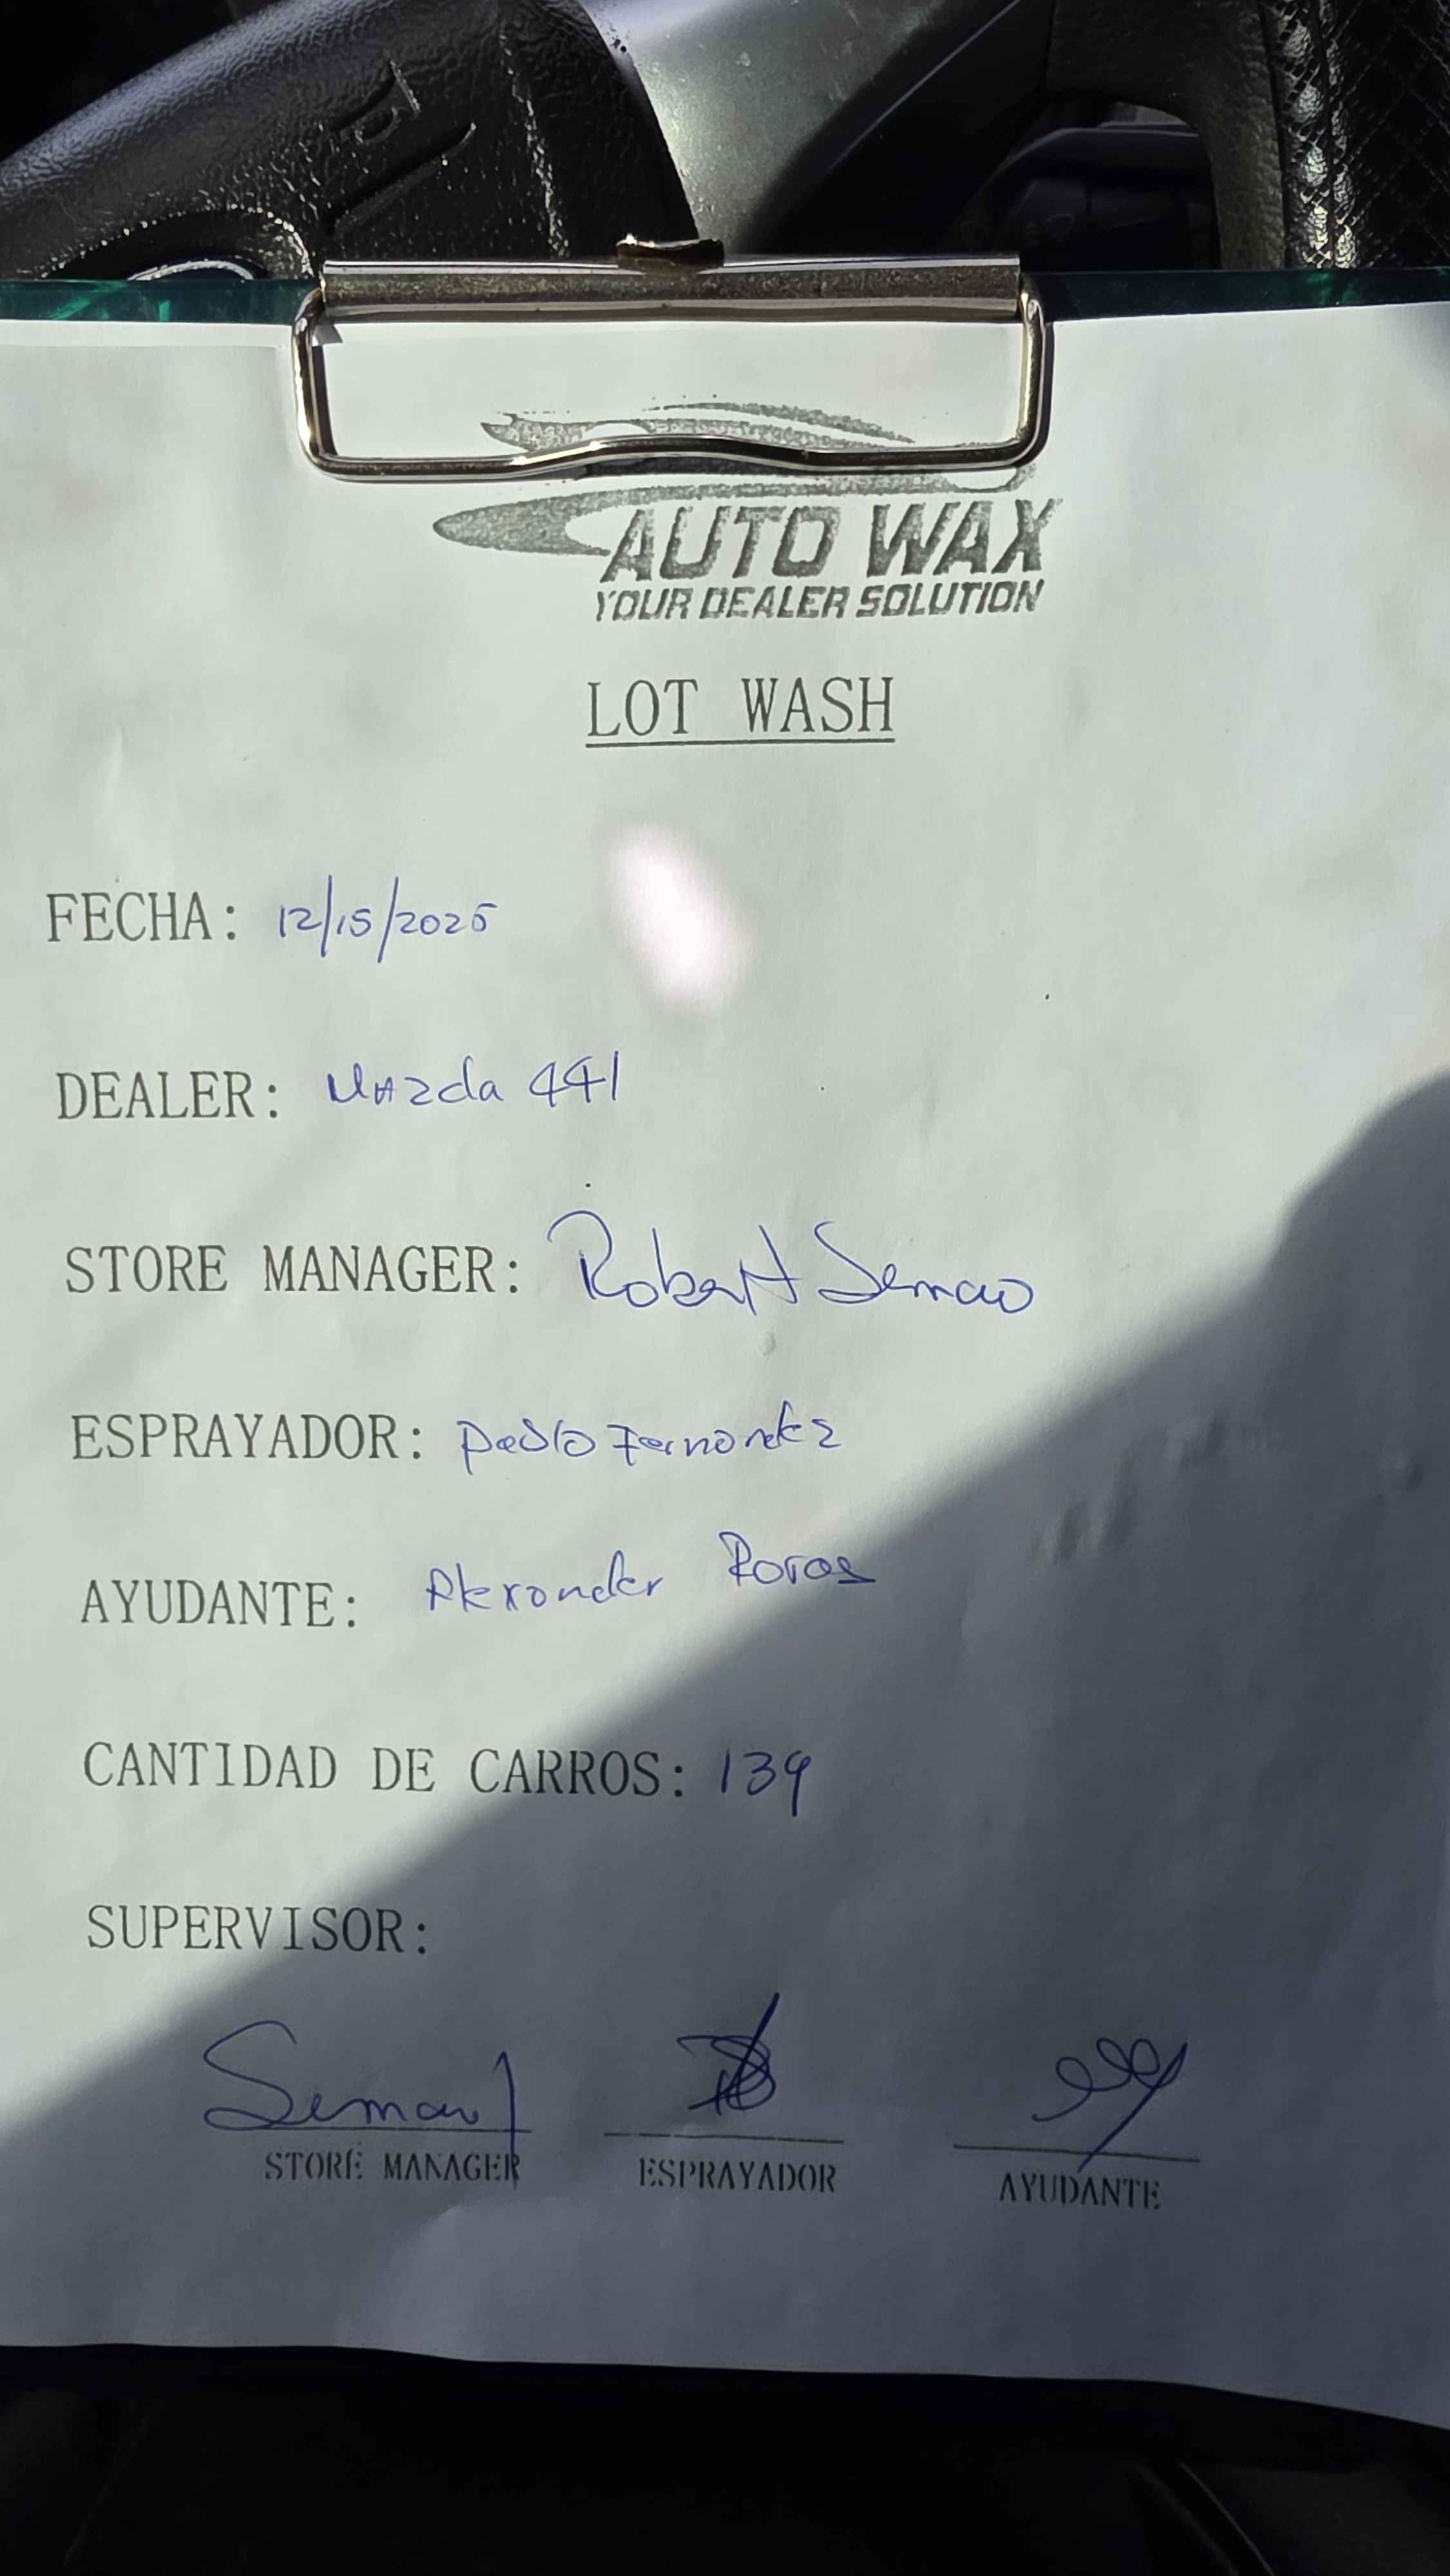 AUTO WAX
YOUR DEALER SOLUTION
LOT WASH
FECHA: 12/15/2025
DEALER: Mazda 441
STORE MANAGER: Robert
ESPRAYADOR: Pablo Fernandez
AYUDANTE: Alexander
CANTIDAD DE CARROS: 139
SUPERVISOR:
STORE MANAGER ESPRAYADOR AYUDANTE